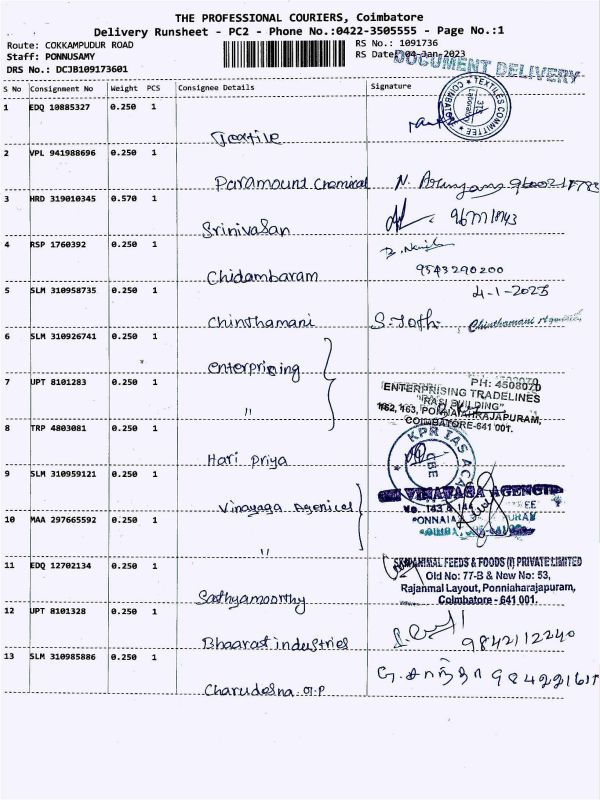 THE PROFESSIONAL COURIERS, Coimbatore
Delivery Runsheet - PC2 - Phone No.:0422-3505555 - Page No.:1
Route: COKKAMPUDUR ROAD
RS No.: 1091736
Staff: PONNUSAMY
RS Date: 04-Jan-2023
DRS No.: DCJB109173601
DOCUMENT DELIVERY
S No Consignment No Weight PCS Consignee Details Signature
1 EDQ 10885327 0.250 1
TEXTILES COMMITTEE
Textile
2 VPL 941988696 0.250 1
Paramount Chemical N.
3 HRD 319010345 0.570 1
Srinivasan
4 RSP 1760392 0.250 1
Chidambaram 9543290200
5 SLM 310958735 0.250 1
4-1-2023
Chinthamani S. Chinthamani
6 SLM 310926741 0.250 1
enterprising
7 UPT 8101283 0.250 1
"
PH: 4508070
ENTERPRISING TRADELINES
"RASI BUILDING"
162, 163, PONNAIAHRAJAPURAM,
COIMBATORE-641 001.
8 TRP 4803081 0.250 1
KPR IAS ACA
CBE
Hari Priya
9 SLM 310959121 0.250 1
Vinayaga Agencies
VINAYAGA AGENCIE
10 MAA 297665592 0.250 1
"
No. 143 & 144
PONNAIA
11 EDQ 12702134 0.250 1
SKM ANIMAL FEEDS & FOODS (I) PRIVATE LIMITED
Old No: 77-B & New No: 53,
Rajanmal Layout, Ponniaharajapuram,
Coimbatore - 641 001.
Sathyamoorthy
12 UPT 8101328 0.250 1
Bhaarast industries 9842112240
13 SLM 310985886 0.250 1
Charudesna .G.P